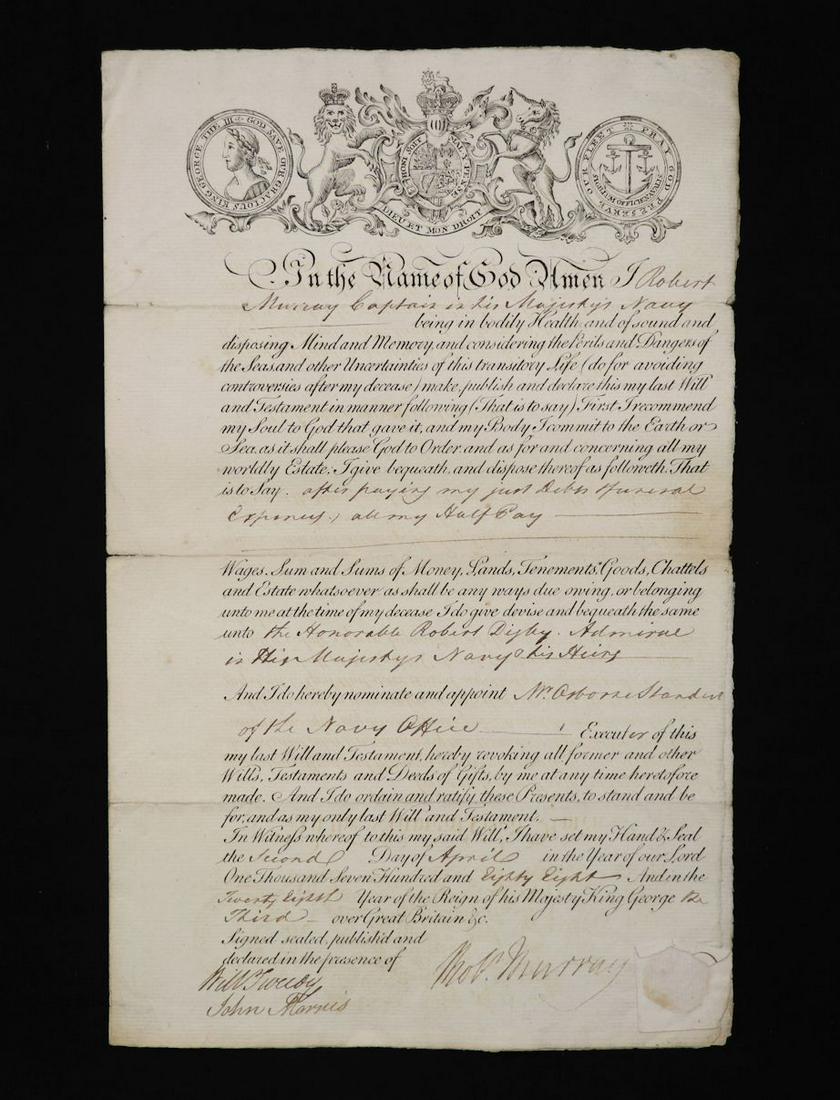 KING GEORGE THE III GOD SAVE OUR GRACIOUS
HONI SOIT MAL Y PENSE
DIEU ET MON DROIT
PRAY GOD PRESERVE OUR FLEET
In the Name of God Amen I Robert
Murray Captain in his Majestys Navy
being in bodily Health, and of sound and
disposing Mind and Memory, and considering the Perils and Dangers of
the Seas, and other Uncertainties of this transitory Life (do for avoiding
controversies after my decease) make, publish and declare this my last Will
and Testament in manner following (That is to say) First I recommend
my Soul to God that gave it, and my Body I commit to the Earth or
Sea, as it shall please God to Order, and as for and concerning all my
worldly Estate, I give bequeath, and dispose thereof as followeth, That
is to Say. after paying my just Debts & funeral
Expences, all my Half Pay
Wages, Sum and Sums of Money, Lands, Tenements, Goods, Chattels
and Estate whatsoever as shall be any ways due owing, or belonging
unto me at the time of my decease I do give devise and bequeath the same
unto the Honorable Robert Digby. Admiral
in His Majestys Navy & his Heirs
And I do hereby nominate and appoint Mr. Osborne Standert
of the Navy Office Executor of this
my last Will and Testament, hereby revoking all former and other
Wills, Testaments and Deeds of Gifts, by me at any time heretofore
made. And I do ordain and ratify these Presents, to stand and be
for, and as my only last Will and Testament.
In Witness whereof to this my said Will, I have set my Hand & Seal
the Second Day of April in the Year of our Lord
One Thousand Seven Hundred and Eighty Eight And in the
Twenty Eighth Year of the Reign of his Majesty King George the
Third over Great Britain &c.
Signed, sealed, publish'd and
declared in the presence of
Willm Tweedy Robt. Murray
John